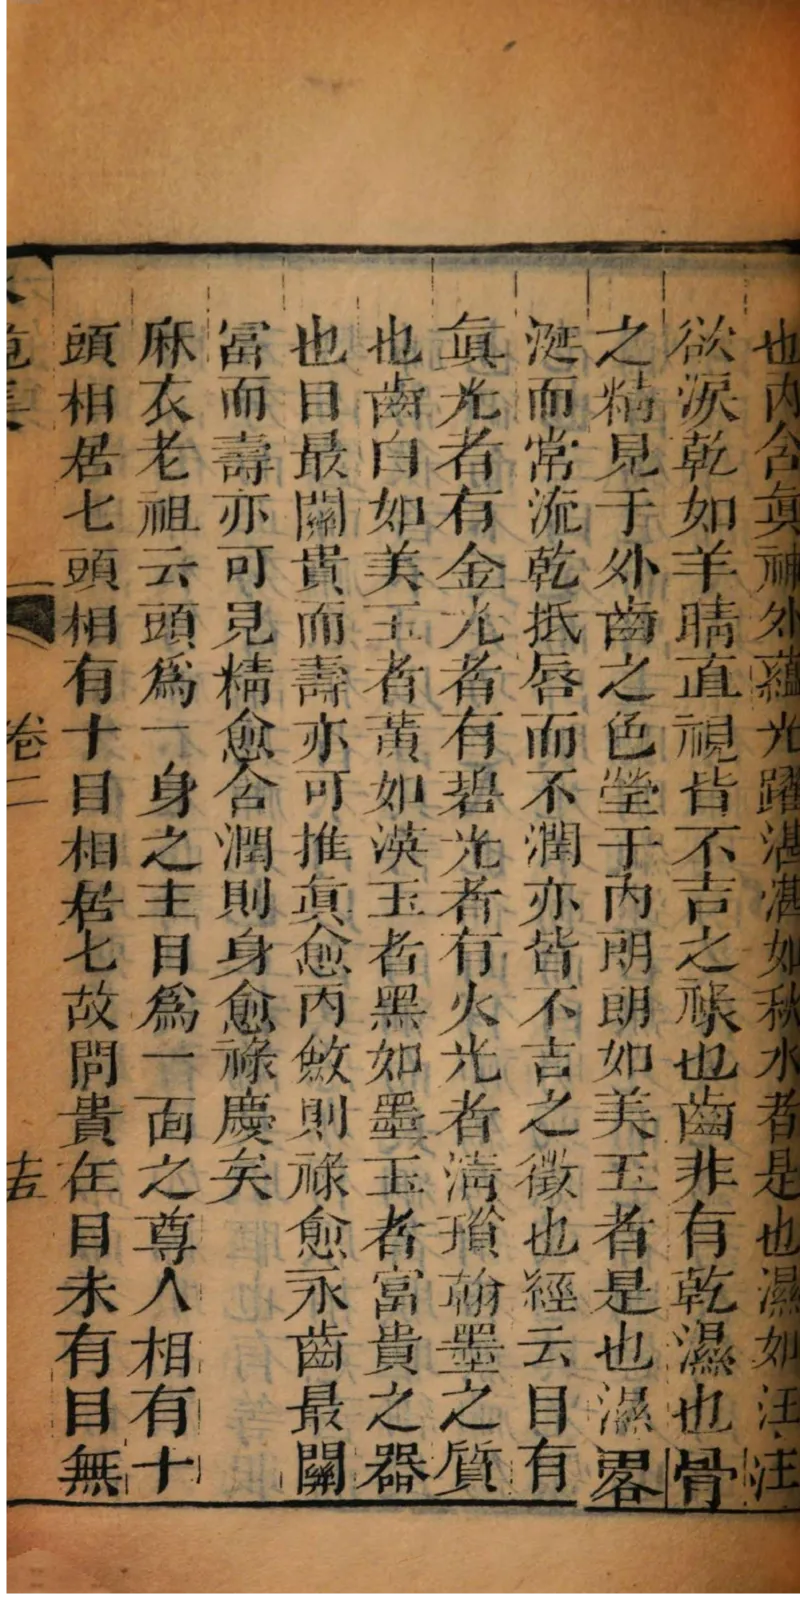 也內含眞神外蘊光躍湛湛如秋水者是也濕如汪汪
欲淚乾如羊睛直視皆不吉之祿也齒非有乾濕也骨
之精見于外齒之色瑩于內朗朗如美玉者是也濕畧
涎而常流乾抵唇而不潤亦皆不吉之徵也經云目有
眞光者有金光者有碧光者有火光者淸瑣翰墨之質
也齒白如美玉者黃如漢玉者黑如墨玉者富貴之器
也目最關貴而壽亦可推眞愈內斂則祿愈永齒最關
富而壽亦可見精愈含潤則身愈祿慶矣
麻衣老祖云頭爲一身之主目爲一面之尊人相有十
頭相居七頭相有十目相居七故問貴在目未有目無
卷二